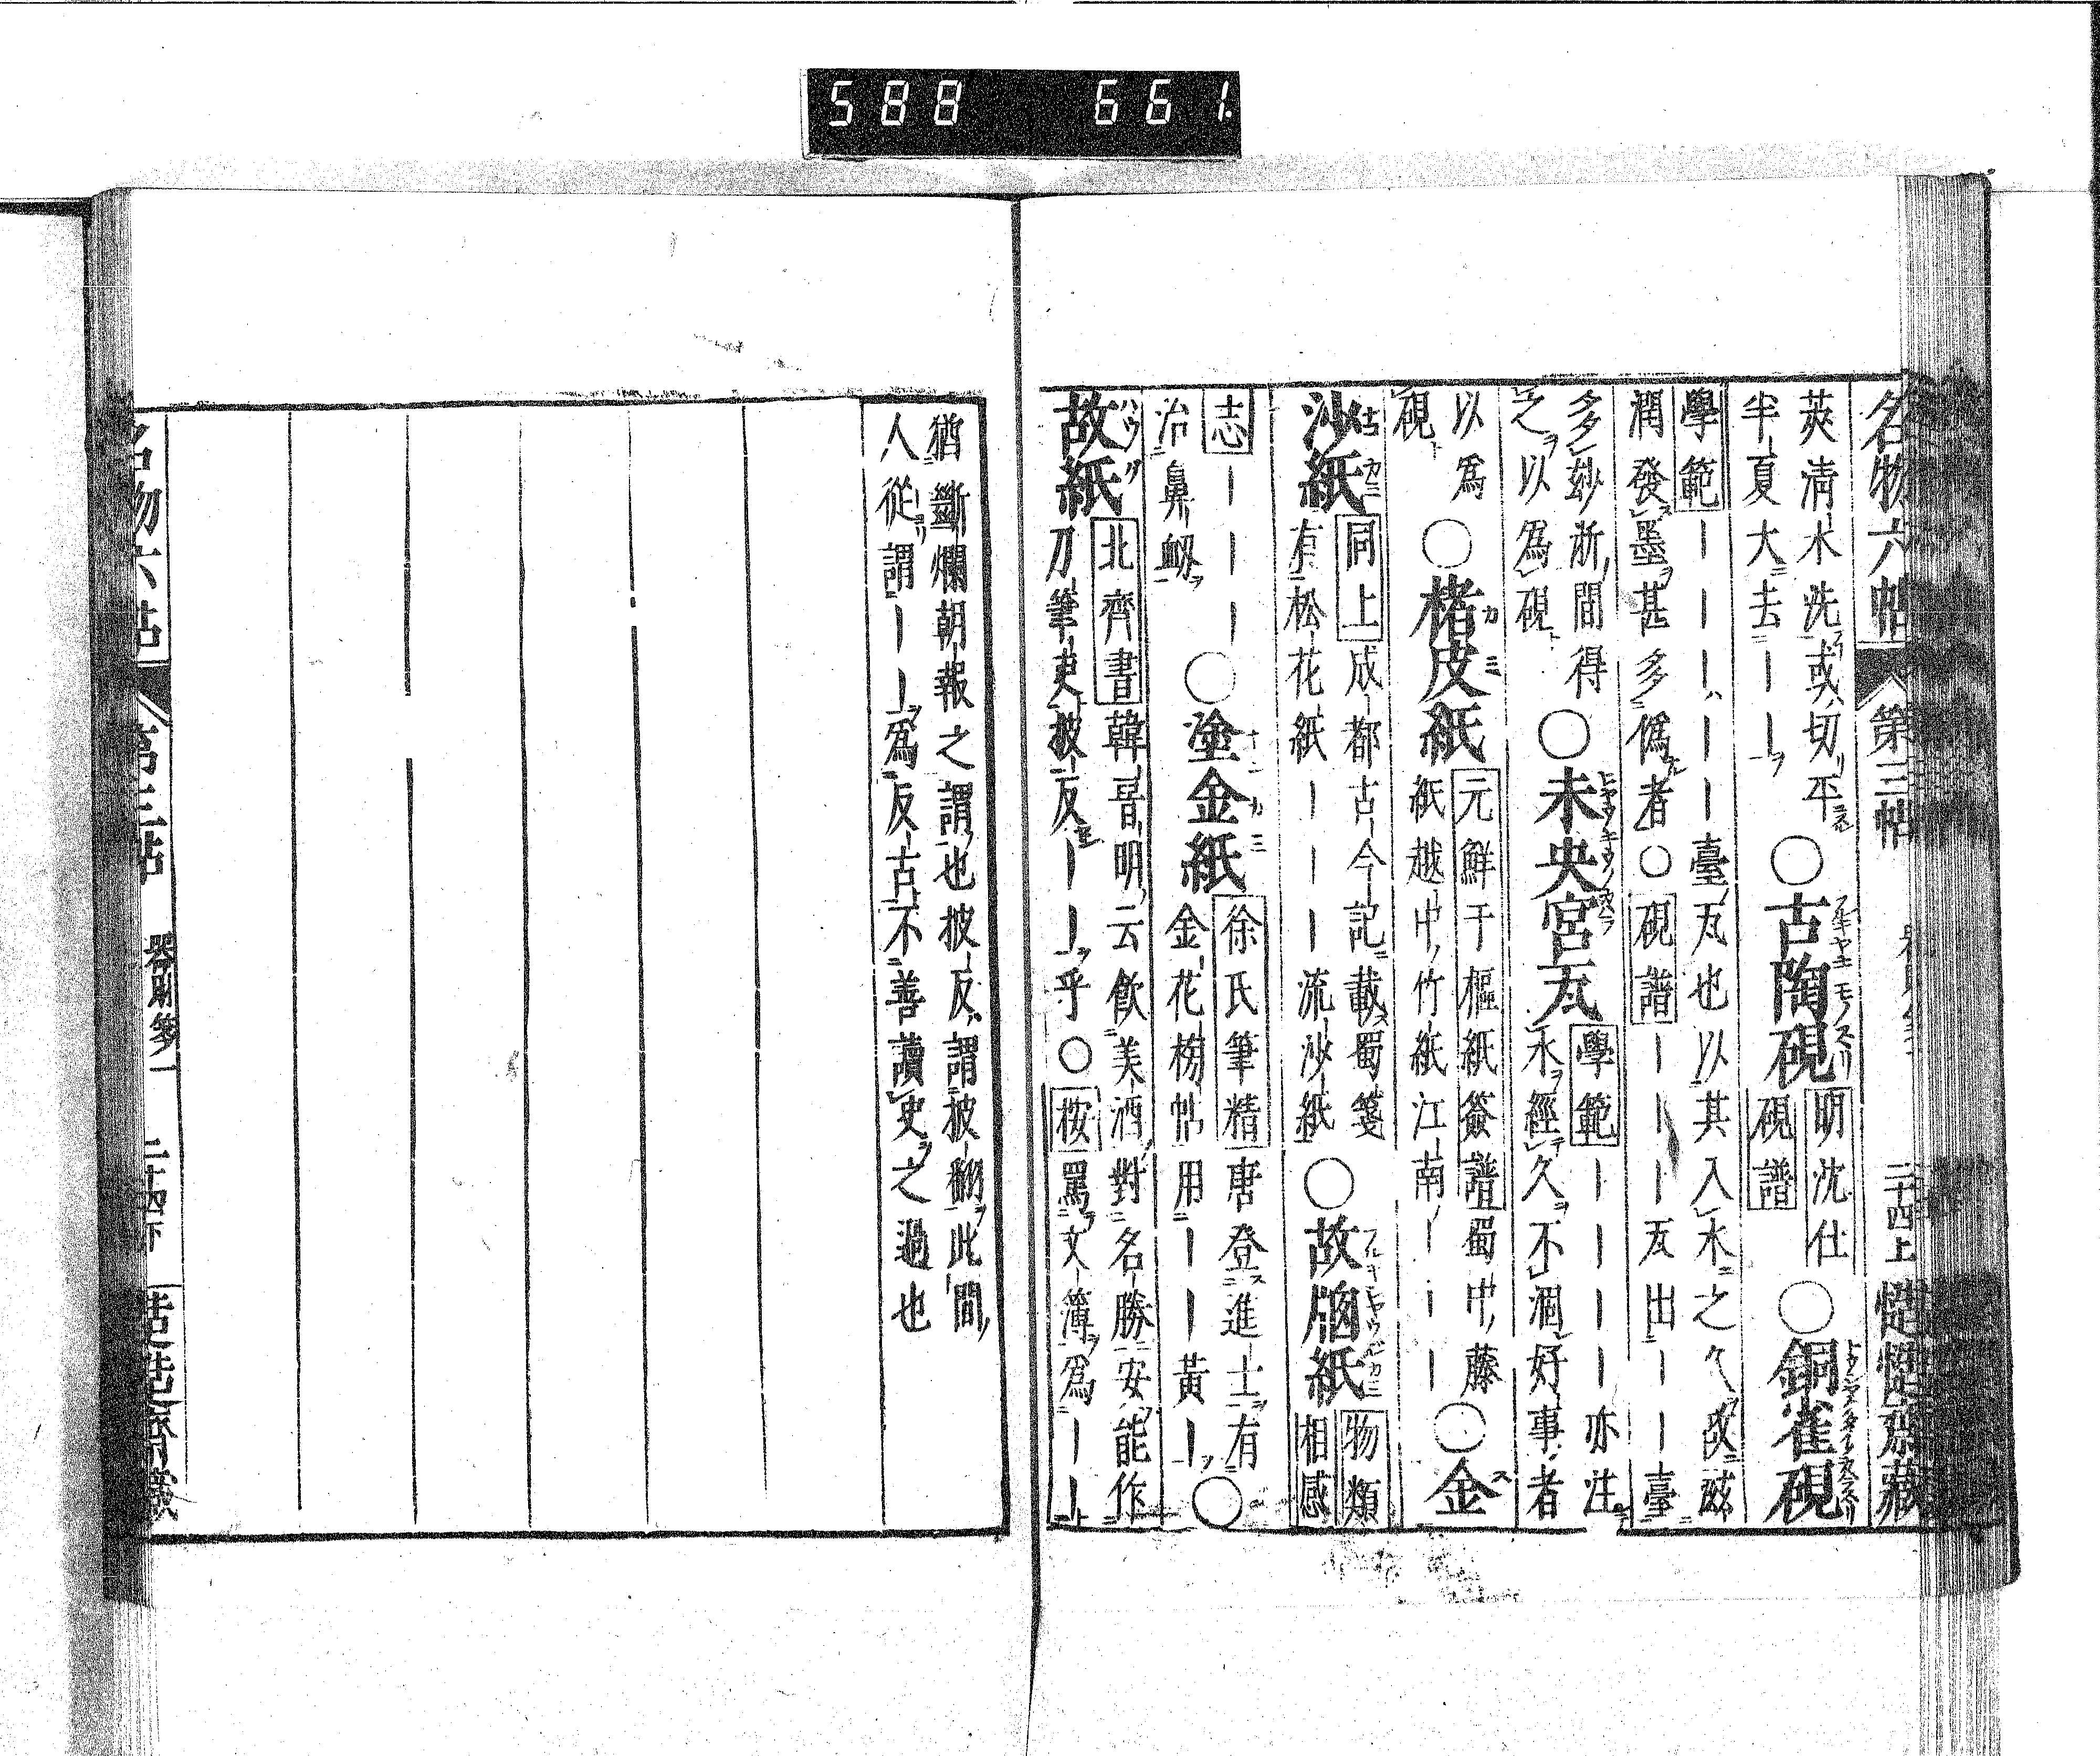 588 661.
名物六帖 第三帖 二十四上 𢡟𢡟齋藏
莢清水洗或切平
半夏大去――○古陶硯 明沈仕
硯譜 ○銅雀硯
學範―――――臺瓦也以其入水之久故滋
潤發墨甚多僞者○硯譜――――瓦出――臺
多玅浙間得○未央宮瓦 學範――――亦注
之以爲硯 水經久不涸好事者
以爲
硯○楮皮紙 元鮮于樞紙箋譜蜀中藤
紙越中竹紙江南――― ○金
沙紙 同上成都古今記載蜀箋
有松花紙―――流沙紙 ○故牕紙 物類
相感
志――――○塗金紙 徐氏筆精唐登進士有
治鼻衂 金花榜帖用――黃― ○
故紙 北齊書韓晉明云飮美酒對名勝安能作
刀筆吏披反――乎○按罵文簿爲――
猶斷爛朝報之謂也披反謂披翻此間
人從謂――爲反古不善讀史之過也
名物六帖 第三帖 器財箋一 二十四下